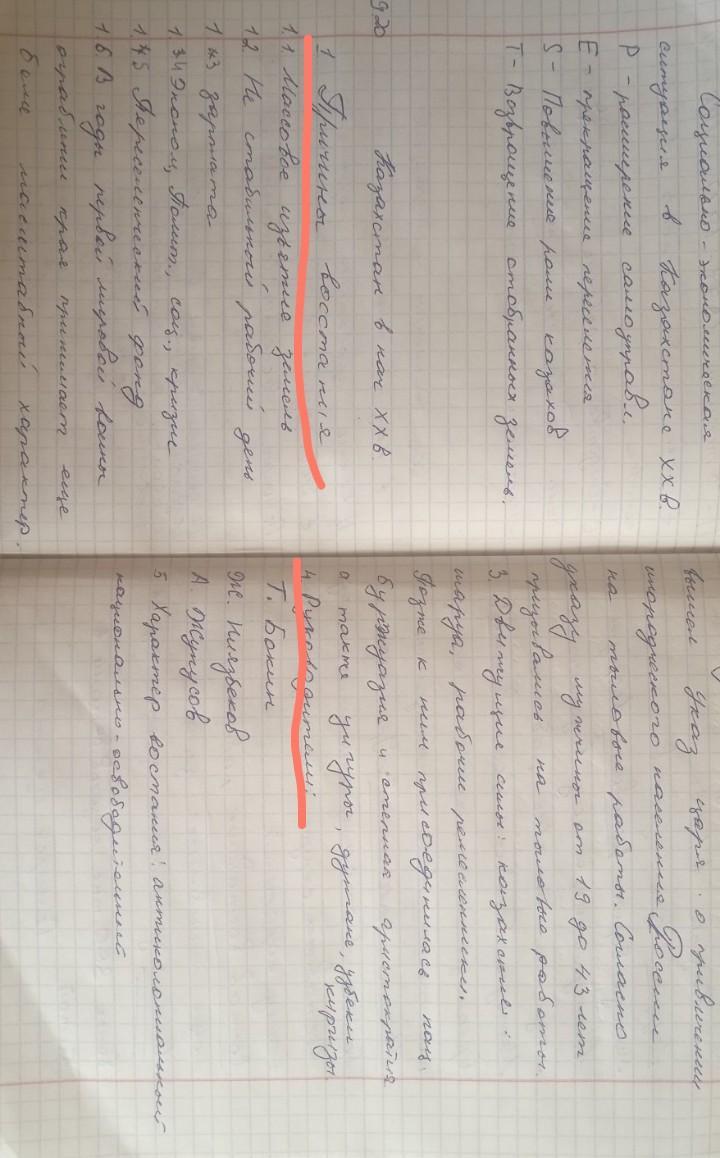 Социально-экономическая
ситуация в Казахстане XX в.
P - расширение самоуправл.
E - прекращение переселен
S - Повышение роли казахов
T - Возвращение отобранных земель.
920
Казахстан в нач XX в.
1 Причины восстания
1.1 Массовое изъятие земель
1.2 Не стабильный рабочий день
1.3 зарплата
1.4 Эконом, Полит., соц., кризис
1.5 Переселенческий фонд
1.6 В годы первой мировой войны
ограбление края принимает еще
более масштабный характер.
вышел Указ царя о привлечении
инородческого населения России
на тыловые работы. Согласно
указу мужчины от 19 до 43 лет
призывались на тыловые работы.
3. Движущие силы: казахские:
шаруа, рабочие ремесленники.
Позже к ним присоединилась нац.
буржуазия и степная аристократия
а также уйгуры, дунгане, узбеки
киргизы.
4. Руководители:
Т. Бокин
Ж. Ниязбеков
А. Жунусов
5 Характер востания: антиколониальный
национально-освободительный